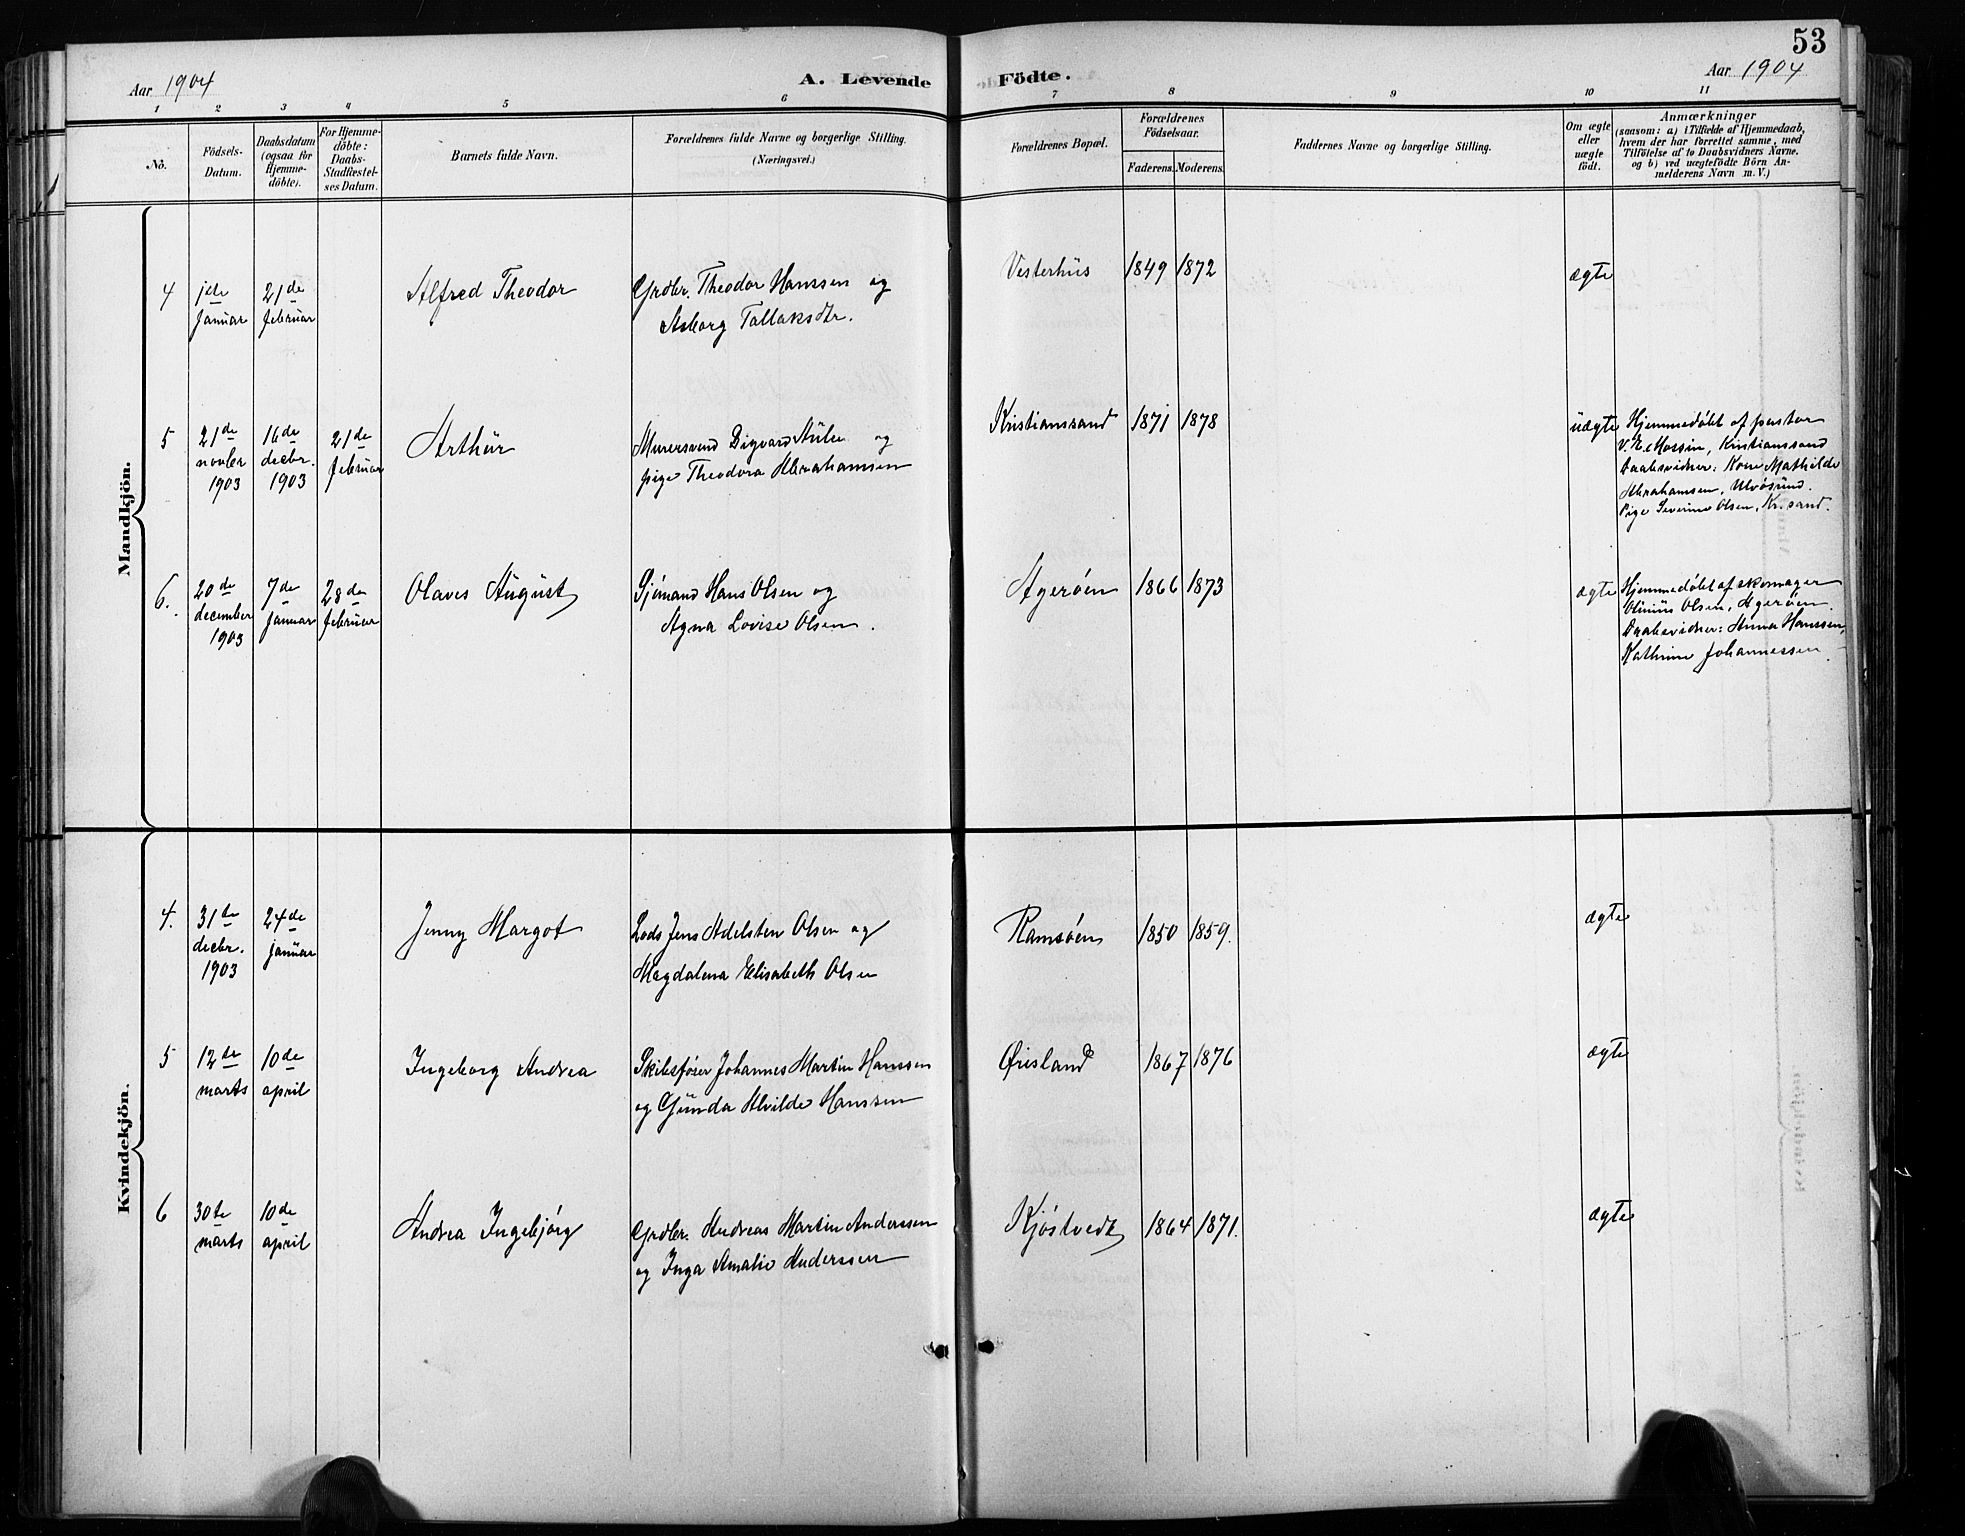 53
Aar 1904
A. Levende Födte.
Aar 1904
1 2 3 4 5 6 7 8 9 10 11
No.
Födsels-Datum.
Daabsdatum (ogsaa for Hjemme-döbte).
For Hjemme-döbte: Daabs-Stadfæstel-ses Datum.
Barnets fulde Navn.
Forældrenes fulde Navne og borgerlige Stilling.
(Næringsvei.)
Forældrenes Bopæl.
Forældrenes Födselsaar.
Faderens. Moderens.
Faddernes Navne og borgerlige Stilling.
Om ægte eller uægte födt.
Anmærkninger
(saasom: a) i Tilfælde af Hjemmedaab,
hvem der har forrettet samme, med
Tilföielse af to Daabsvidners Navne.
og b) ved uægtefödte Börn An-
melderens Navn m. V.)
Mandkjön.
4 1ste januar 21de februar Alfred Theodor Grdbr. Theodor Hanssen og
Asborg Tallaksdtr. Vesterhus 1849 1872 ægte
5 21de novbr 1903 16de decbr. 1903 21de februar Arthur Murersvend Sigvard og
pige Theodora Abrahamsen Kristianssand 1871 1878 uægte
Hjemmedøbt af pastor
V. E. Kristianssand
Daabsvidner: Kone Mathilde
Abrahamsen, Ulvøsund.
Pige Severine Olsen, Kr.sand.
6. 20de december 1903 7de januar 28de februar Olaves August Sjømand Hans Olsen og
Agna Lovise Olsen. Agerøen 1866 1873 ægte
Hjemmedøbt af skomager
Olsen, Agerøen.
Daabsvidner: Anna Hanssen,
Kathrine Johannessen
Kvindekjön.
4. 31te decbr. 1903 24de januar Jenny Margot Lods Jens Adelsten Olsen og
Magdalena Elisabeth Olsen Ramsøen 1850 1859. ægte
5 12te marts 10de april Ingeborg Andrea Skibsfører Johannes Martin Hanssen
og Gunda Alvilde Hanssen Ørisland 1867 1876 ægte
6 30te marts 10de april Andrea Ingebjörg Grdbr. Andreas Martin Anderssen
og Inga Amalie Anderssen Kjöstvedt 1864 1871. ægte